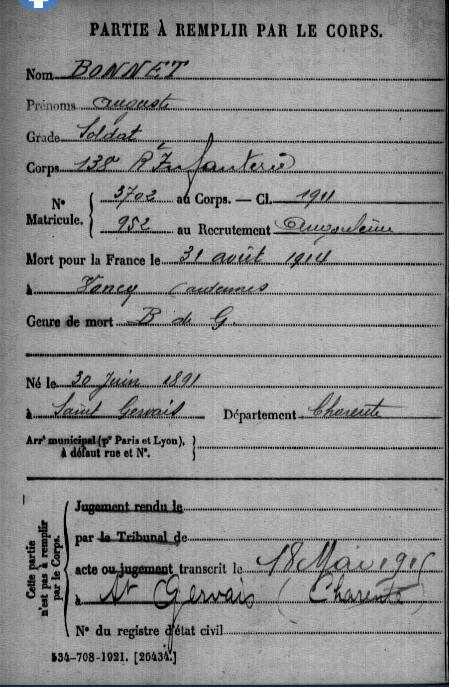 PARTIE À REMPLIR PAR LE CORPS.
Nom BONNET
Prénoms Auguste
Grade Soldat
Corps 138e Rt Infanterie
Nº Matricule. 3702 au Corps. — Cl. 1911
952 au Recrutement Angoulême
Mort pour la France le 31 août 1914
à Voncy Ardennes
Genre de mort B de G.
Né le 30 Juin 1891
à Saint Gervais Département Charente
Arrt municipal (pr Paris et Lyon),
à défaut rue et Nº.
Cette partie
n'est pas à remplir
par le Corps.
Jugement rendu le
par le Tribunal de
acte ou jugement transcrit le 18 Mai 1915
à St Gervais (Charente)
Nº du registre d'état civil
534-708-1921. [26434.]